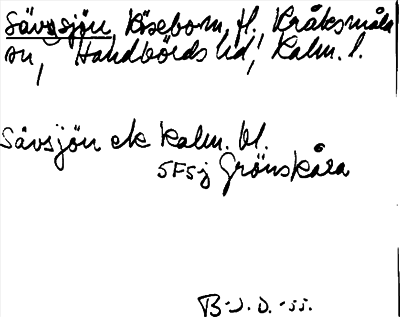 Sävsjön, Röseborn, H., Kråksmåla
sn, Handbörds hd, Kalm. l.
Sävsjön ek Kalm. bl.
5F5j Grönskåra
B-J. O. -55.